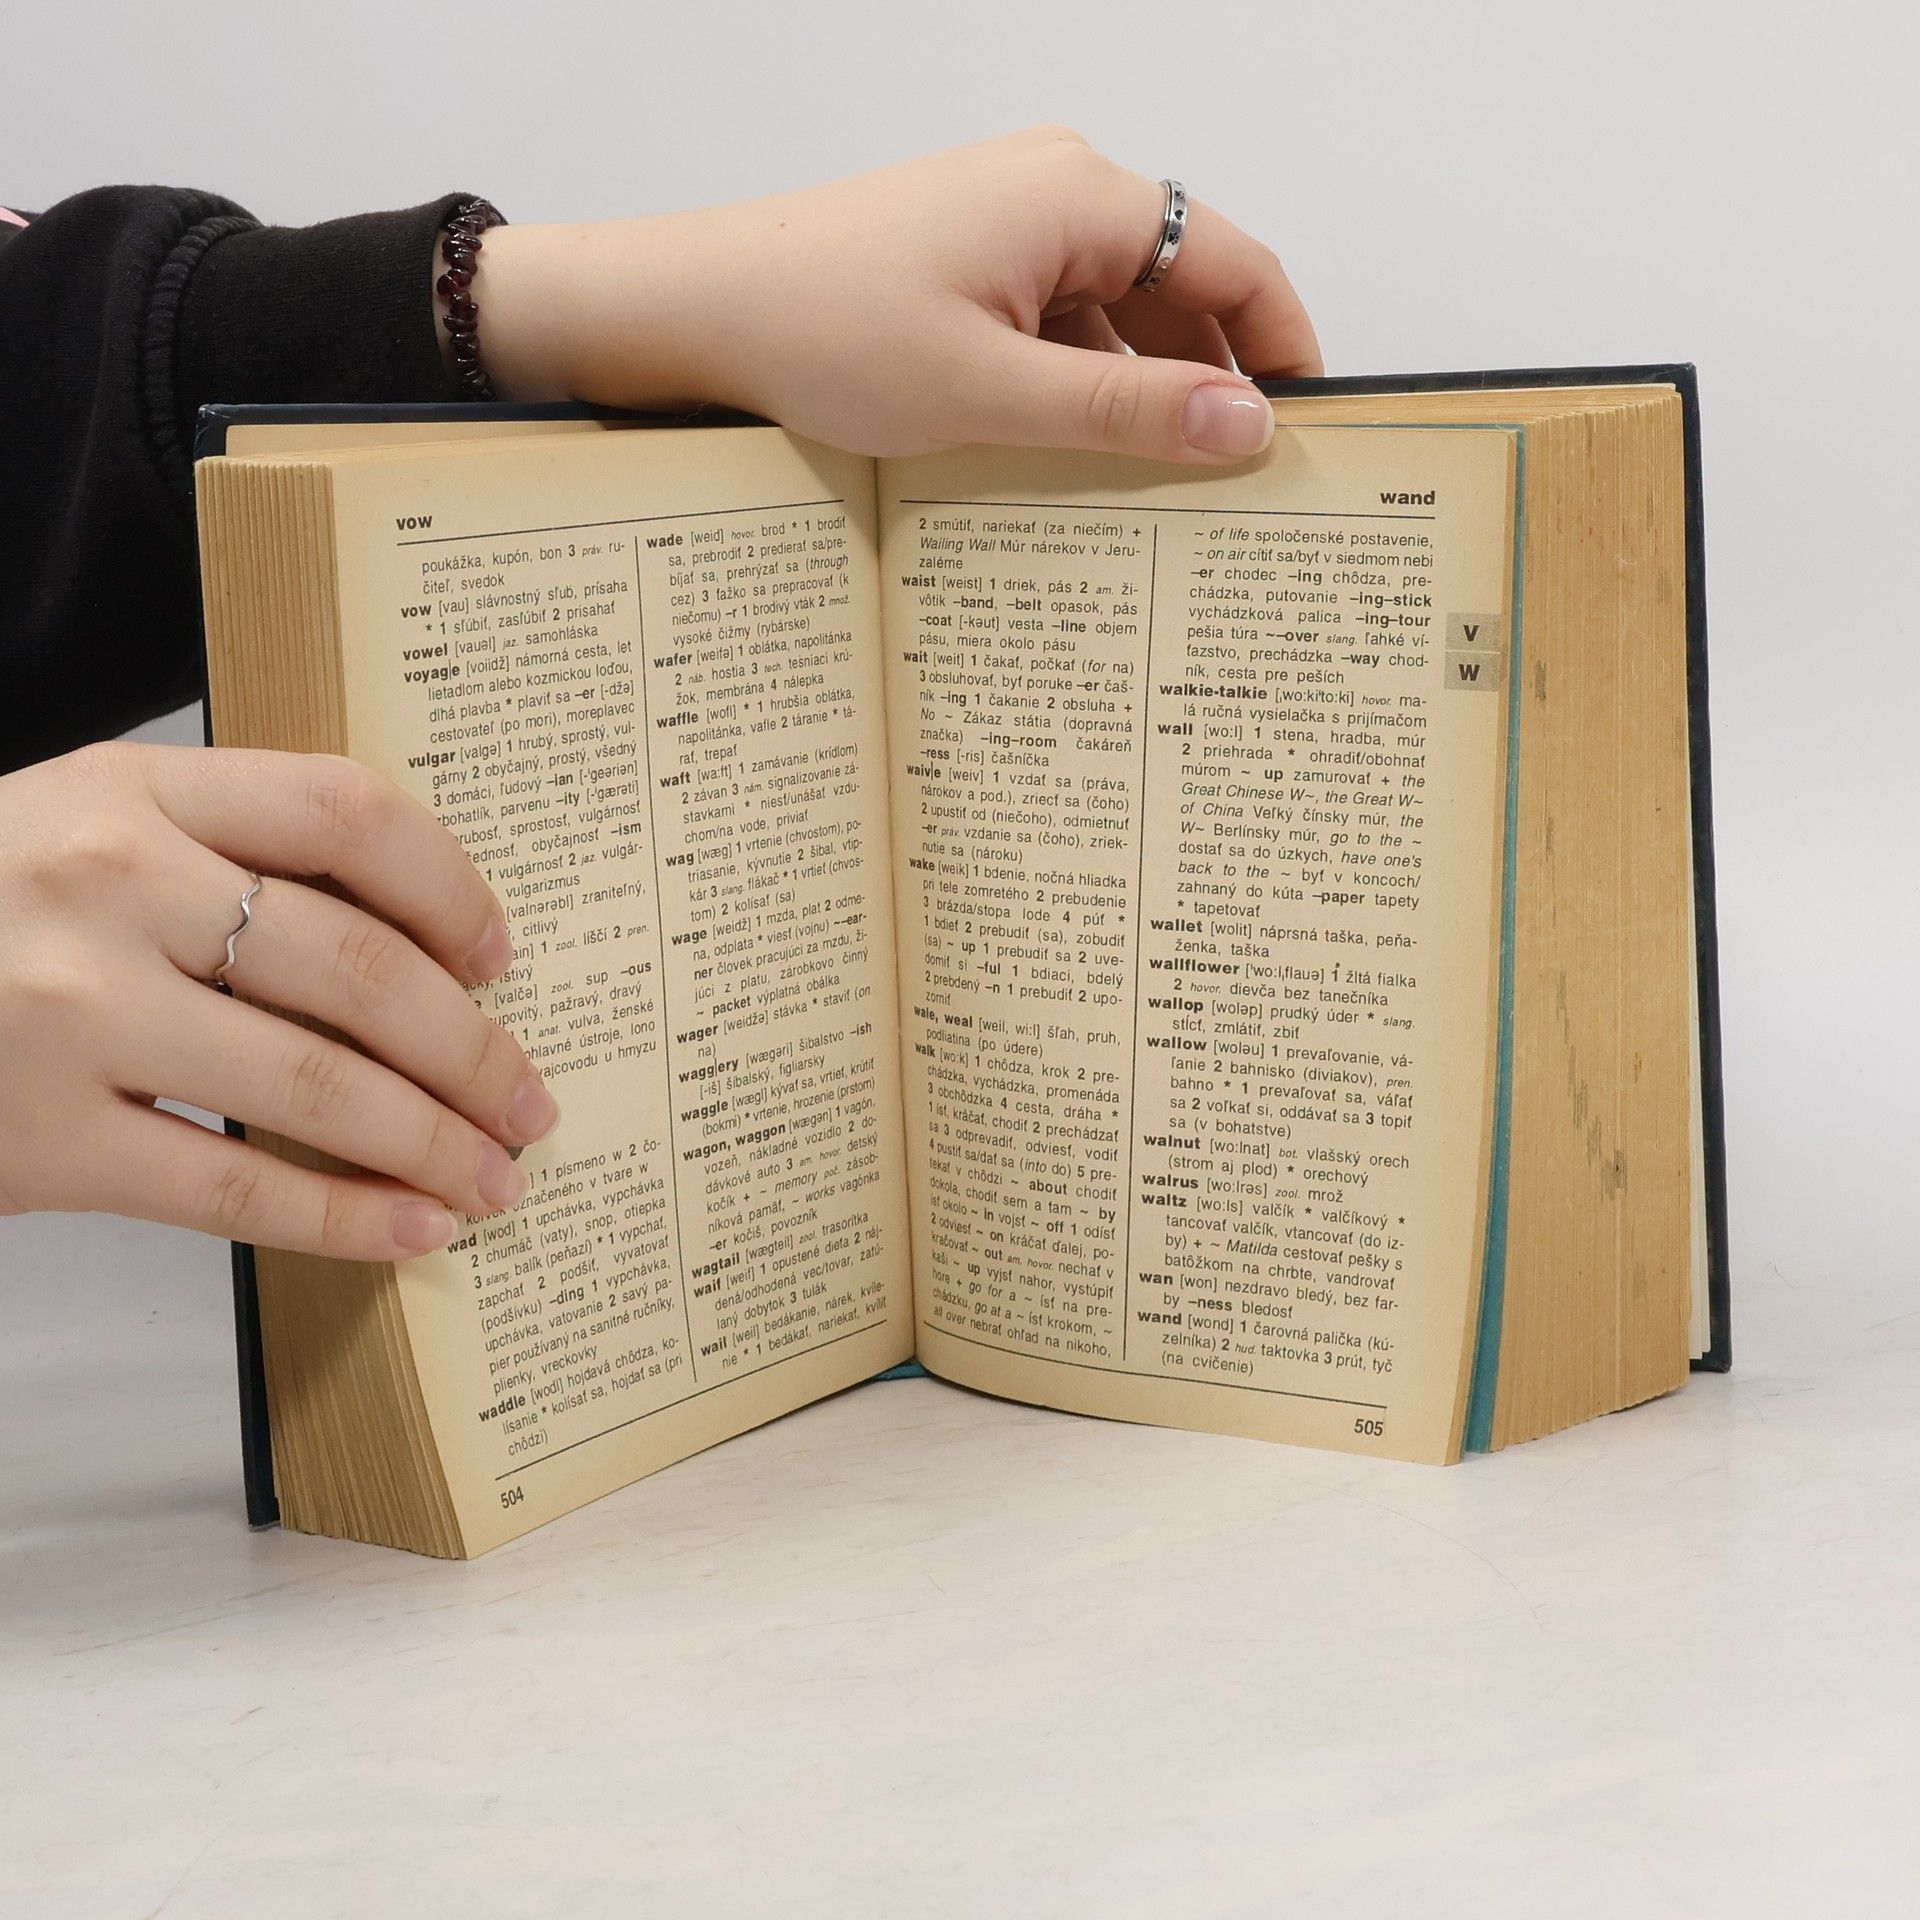 vow
poukážka, kupón, bon 3 práv. ru-
čiteľ, svedok
vow [vau] slávnostný sľub, prísaha
* 1 sľúbiť, zasľúbiť 2 prisahať
vowel [vauəl] jaz. samohláska
voyag|e [voiidž] námorná cesta, let
lietadlom alebo kozmickou loďou,
dlhá plavba * plaviť sa –er [-džə]
cestovateľ (po mori), moreplavec
vulgar [valgə] 1 hrubý, sprostý, vul-
gárny 2 obyčajný, prostý, všedný
3 domáci, ľudový –ian [-'geəriən]
zbohatlík, parvenu –ity [-'gærəti]
hrubosť, sprostosť, vulgárnosť
obyčajnosť –ism
1 vulgárnosť 2 jaz. vulgár-
vulgarizmus
[valnərəbl] zraniteľný,
citlivý
1 zool. líščí 2 pren.
[valčə] zool. sup –ous
pažravý, dravý
1 anat. vulva, ženské
ústroje, lono
vajcovodu u hmyzu
1 písmeno w 2 čo-
označeného v tvare w
wad [wod] 1 upchávka, vypchávka
2 chumáč (vaty), snop, otiepka
3 slang. balík (peňazí) * 1 vypchať,
zapchať 2 podšiť, vyvatovať
(podšívku) –ding 1 vypchávka,
upchávka, vatovanie 2 savý pa-
pier používaný na sanitné ručníky,
plienky, vreckovky
waddle [wodl] hojdavá chôdza, ko-
lísanie * kolísať sa, hojdať sa (pri
chôdzi)
wade [weid] hovor. brod * 1 brodiť
sa, prebrodiť 2 predierať sa/pre-
bíjať sa, prehrýzať sa (through
cez) 3 ťažko sa prepracovať (k
niečomu) –r 1 brodivý vták 2 množ.
vysoké čižmy (rybárske)
wafer [weifə] 1 oblátka, napolitánka
2 náb. hostia 3 tech. tesniaci krú-
žok, membrána 4 nálepka
waffle [wofl] * 1 hrubšia oblátka,
napolitánka, vafle 2 táranie * tá-
rať, trepať
waft [wa:ft] 1 zamávanie (krídlom)
2 závan 3 nám. signalizovanie zá-
stavkami * niesť/unášať vzdu-
chom/na vode, priviať
wag [wæg] 1 vrtenie (chvostom), po-
triasanie, kývnutie 2 šibal, vtip-
kár 3 slang. flákač * 1 vrtieť (chvos-
tom) 2 kolísať (sa)
wage [weidž] 1 mzda, plat 2 odme-
na, odplata * viesť (vojnu) ~–ear-
ner človek pracujúci za mzdu, ži-
júci z platu, zárobkovo činný
~ packet výplatná obálka
wager [weidžə] stávka * staviť (on
na)
wagg|ery [wægəri] šibalstvo –ish
[-iš] šibalský, figliarsky
waggle [wægl] kývať sa, vrtieť, krútiť
(bokmi) * vrtenie, hrozenie (prstom)
wagon, waggon [wægən] 1 vagón,
vozeň, nákladné vozidlo 2 do-
dávkové auto 3 am. hovor. detský
kočík + ~ memory poč. zásob-
níková pamäť, ~ works vagónka
–er kočiš, povozník
wagtail [wægteil] zool. trasorítka
waif [weif] 1 opustené dieťa 2 náj-
dená/odhodená vec/tovar, zatú-
laný dobytok 3 tulák
wail [weil] bedákanie, nárek, kvíle-
nie * 1 bedákať, nariekať, kvíliť
504
wand
2 smútiť, nariekať (za niečím) +
Wailing Wall Múr nárekov v Jeru-
zaléme
waist [weist] 1 driek, pás 2 am. ži-
vôtik –band, –belt opasok, pás
–coat [-kəut] vesta –line objem
pásu, miera okolo pásu
wait [weit] 1 čakať, počkať (for na)
3 obsluhovať, byť poruke –er čaš-
ník –ing 1 čakanie 2 obsluha +
No ~ Zákaz státia (dopravná
značka) –ing–room čakáreň
–ress [-ris] čašníčka
waiv|e [weiv] 1 vzdať sa (práva,
nárokov a pod.), zriecť sa (čoho)
2 upustiť od (niečoho), odmietnuť
–er práv. vzdanie sa (čoho), zriek-
nutie sa (nároku)
wake [weik] 1 bdenie, nočná hliadka
pri tele zomretého 2 prebudenie
3 brázda/stopa lode 4 púť *
1 bdieť 2 prebudiť (sa), zobudiť
(sa) ~ up 1 prebudiť sa 2 uve-
domiť si –ful 1 bdiaci, bdelý
2 prebdený –n 1 prebudiť 2 upo-
zorniť
wale, weal [weil, wi:l] šľah, pruh,
podliatina (po údere)
walk [wo:k] 1 chôdza, krok 2 pre-
chádzka, vychádzka, promenáda
3 obchôdzka 4 cesta, dráha *
1 ísť, kráčať, chodiť 2 prechádzať
sa 3 odprevadiť, odviesť, vodiť
4 pustiť sa/dať sa (into do) 5 pre-
tekať v chôdzi ~ about chodiť
dokola, chodiť sem a tam ~ by
ísť okolo ~ in vojsť ~ off 1 odísť
2 odviesť ~ on kráčať ďalej, po-
kračovať ~ out am. hovor. nechať v
kaši ~ up vyjsť nahor, vystúpiť
hore + go for a ~ ísť na pre-
chádzku, go at a ~ ísť krokom, ~
all over nebrať ohľad na nikoho,
~ of life spoločenské postavenie,
~ on air cítiť sa/byť v siedmom nebi
–er chodec –ing chôdza, pre-
chádzka, putovanie –ing–stick
vychádzková palica –ing–tour
pešia túra ~–over slang. ľahké ví-
ťazstvo, prechádzka –way chod-
ník, cesta pre peších
walkie-talkie [,wo:ki'to:ki] hovor. ma-
lá ručná vysielačka s prijímačom
wall [wo:l] 1 stena, hradba, múr
2 priehrada * ohradiť/obohnať
múrom ~ up zamurovať + the
Great Chinese W~, the Great W~
of China Veľký čínsky múr, the
W~ Berlínsky múr, go to the ~
dostať sa do úzkych, have one's
back to the ~ byť v koncoch/
zahnaný do kúta –paper tapety
* tapetovať
wallet [wolit] náprsná taška, peňa-
ženka, taška
wallflower ['wo:l,flauə] 1 žltá fialka
2 hovor. dievča bez tanečníka
wallop [woləp] prudký úder * slang.
stĺcť, zmlátiť, zbiť
wallow [woləu] 1 prevaľovanie, vá-
ľanie 2 bahnisko (diviakov), pren.
bahno * 1 prevaľovať sa, váľať
sa 2 voľkať si, oddávať sa 3 topiť
sa (v bohatstve)
walnut [wo:lnat] bot. vlašský orech
(strom aj plod) * orechový
walrus [wo:lrəs] zool. mrož
waltz [wo:ls] valčík * valčíkový *
tancovať valčík, vtancovať (do iz-
by) + ~ Matilda cestovať pešky s
batôžkom na chrbte, vandrovať
wan [won] nezdravo bledý, bez far-
by –ness bledosť
wand [wond] 1 čarovná palička (kú-
zelníka) 2 hud. taktovka 3 prút, tyč
(na cvičenie)
V
W
505